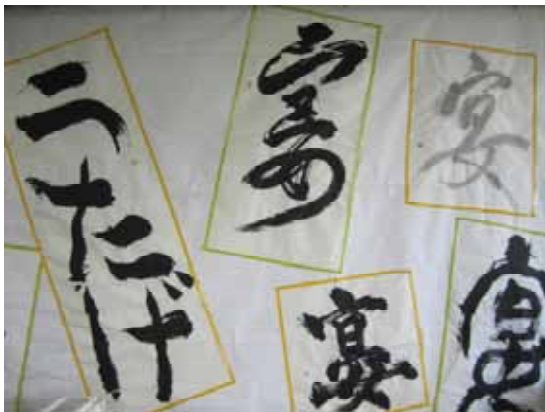 うたげ
宴
宴
宴
宴